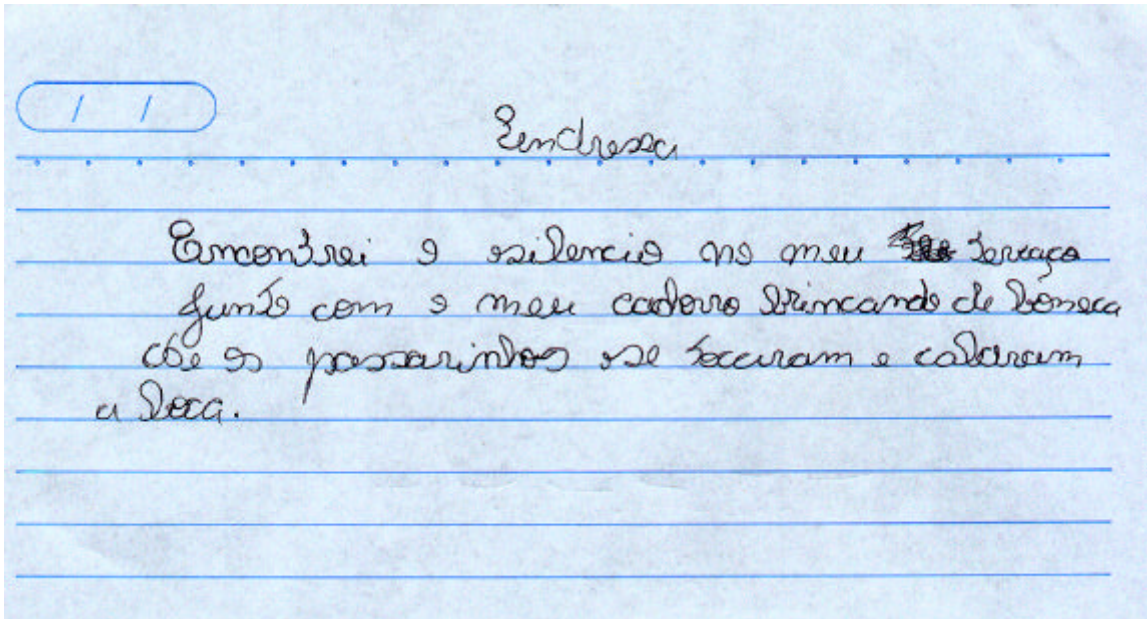 / /
Endressa
Emcontrei o silencio no meu terraço
junto com o meu cachorro brincando de boneca
os passarinhos se tocaram e calaram
a boca.